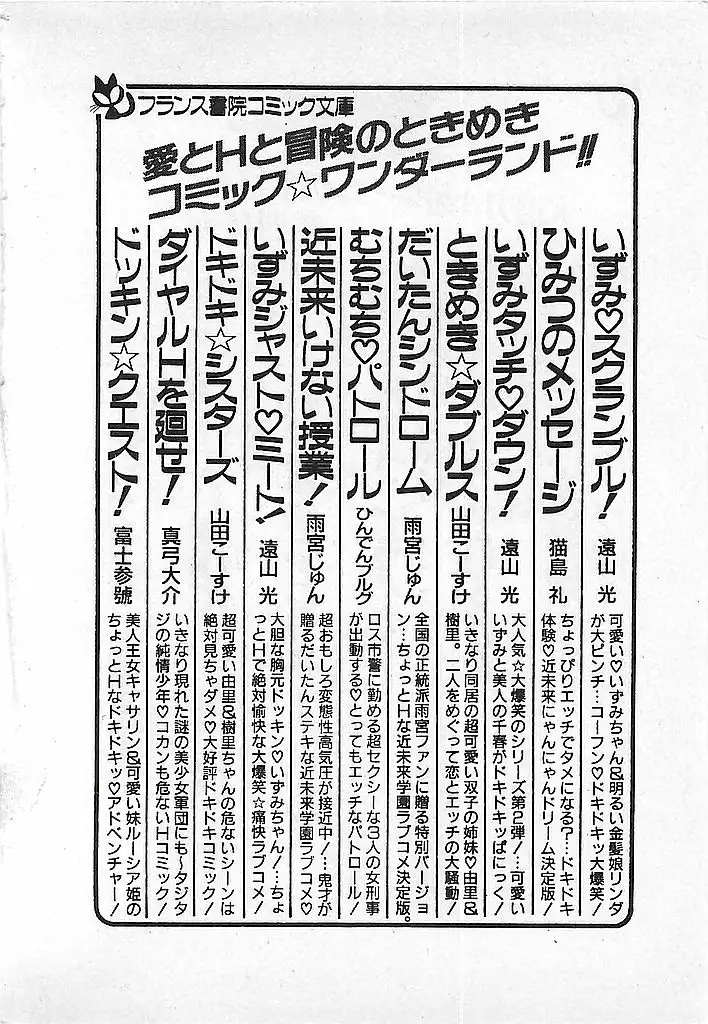 フランス書院コミック文庫
愛とHと冒険のときめき
コミック☆ワンダーランド!!
いずみ♡スクランブル! 遠山 光
可愛い♡いずみちゃん&明るい金髪娘リンダ
が大ピンチ…コーフン♡ドキドキッ大爆笑!
ひみつのメッセージ 猫島 礼
ちょっぴりエッチでタメになる?…ドキドキ
体験♡近未来にゃんにゃんドリーム決定版!
いずみタッチ♡ダウン! 遠山 光
大人気☆大爆笑のシリーズ第2弾!…可愛い
いずみと美人の千春がドキドキッぱにっく!
ときめき☆ダブルス 山田こーすけ
いきなり同居の超可愛い双子の姉妹♡由里&
樹里。二人をめぐって恋とエッチの大騒動!
だいたんシンドローム 雨宮じゅん
全国の正統派雨宮ファンに贈る特別バージョ
ン…ちょっとHな近未来学園ラブコメ決定版。
むちむち♡パトロール ひんでんブルグ
ロス市警に勤める超セクシーな3人の女刑事
が出動する♡とってもエッチなパトロール!
近未来いけない授業! 雨宮じゅん
超おもしろ変態性高気圧が接近中!…鬼才が
贈るだいたんステキな近未来学園ラブコメ♡
いずみジャスト♡ミート! 遠山 光
大胆な胸元ドッキン♡いずみちゃん!…ちょ
っとHで絶対愉快な大爆笑☆痛快ラブコメ!
ドキドキ☆シスターズ 山田こーすけ
超可愛い由里&樹里ちゃんの危ないシーンは
絶対見ちゃダメ♡大好評ドキドキコミック!
ダイヤルHを廻せ! 真弓大介
いきなり現れた謎の美少女軍団にも〜タジタ
ジの純情少年♡コカンも危ないHコミック!
ドッキン☆クエスト! 富士参號
美人王女キャサリン&可愛い妹ルーシア姫の
ちょっとHなドキドキッ♡アドベンチャー!